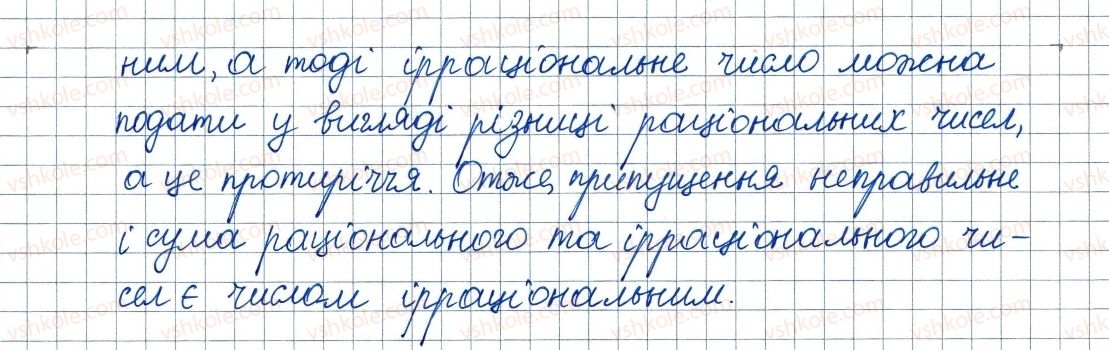 ним, а тоді ірраціональне число можна
подати у вигляді різниці раціональних чисел,
а це протиріччя. Отже, припущення неправильне
і сума раціонального та ірраціонального чи-
сел є числом ірраціональним.